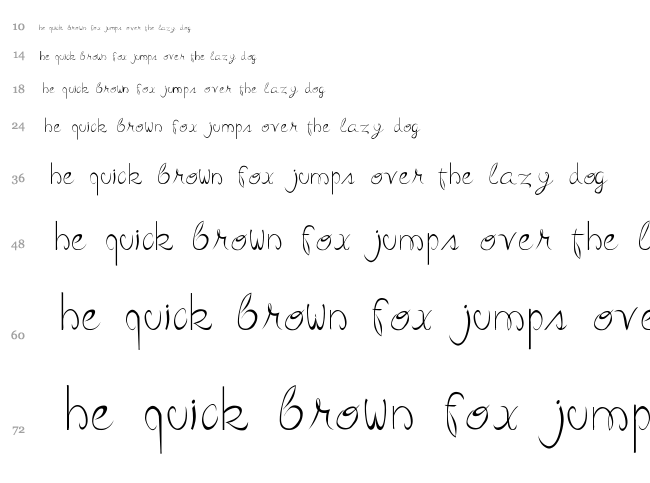 10 he quick brown fox jumps over the lazy dog
14 he quick brown fox jumps over the lazy dog
18 he quick brown fox jumps over the lazy dog
24 he quick brown fox jumps over the lazy dog
36 he quick brown fox jumps over the lazy dog
48 he quick brown fox jumps over the l
60 he quick brown fox jumps ove
72 he quick brown fox jump